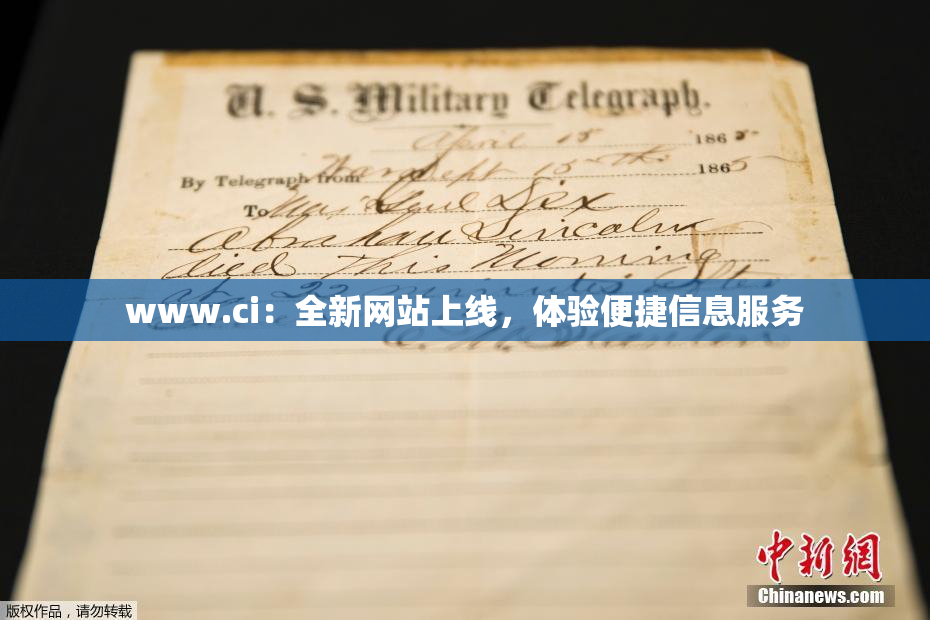 U. S. Military Telegraph.
April 15 1865
By Telegraph from War Dept 15th 1865
To Maj Genl Dix
Abraham Lincoln
died This Morning
at 22 minutes after
www.ci：全新网站上线，体验便捷信息服务
E. M. Stanton
中新网
Chinanews.com
版权作品，请勿转载